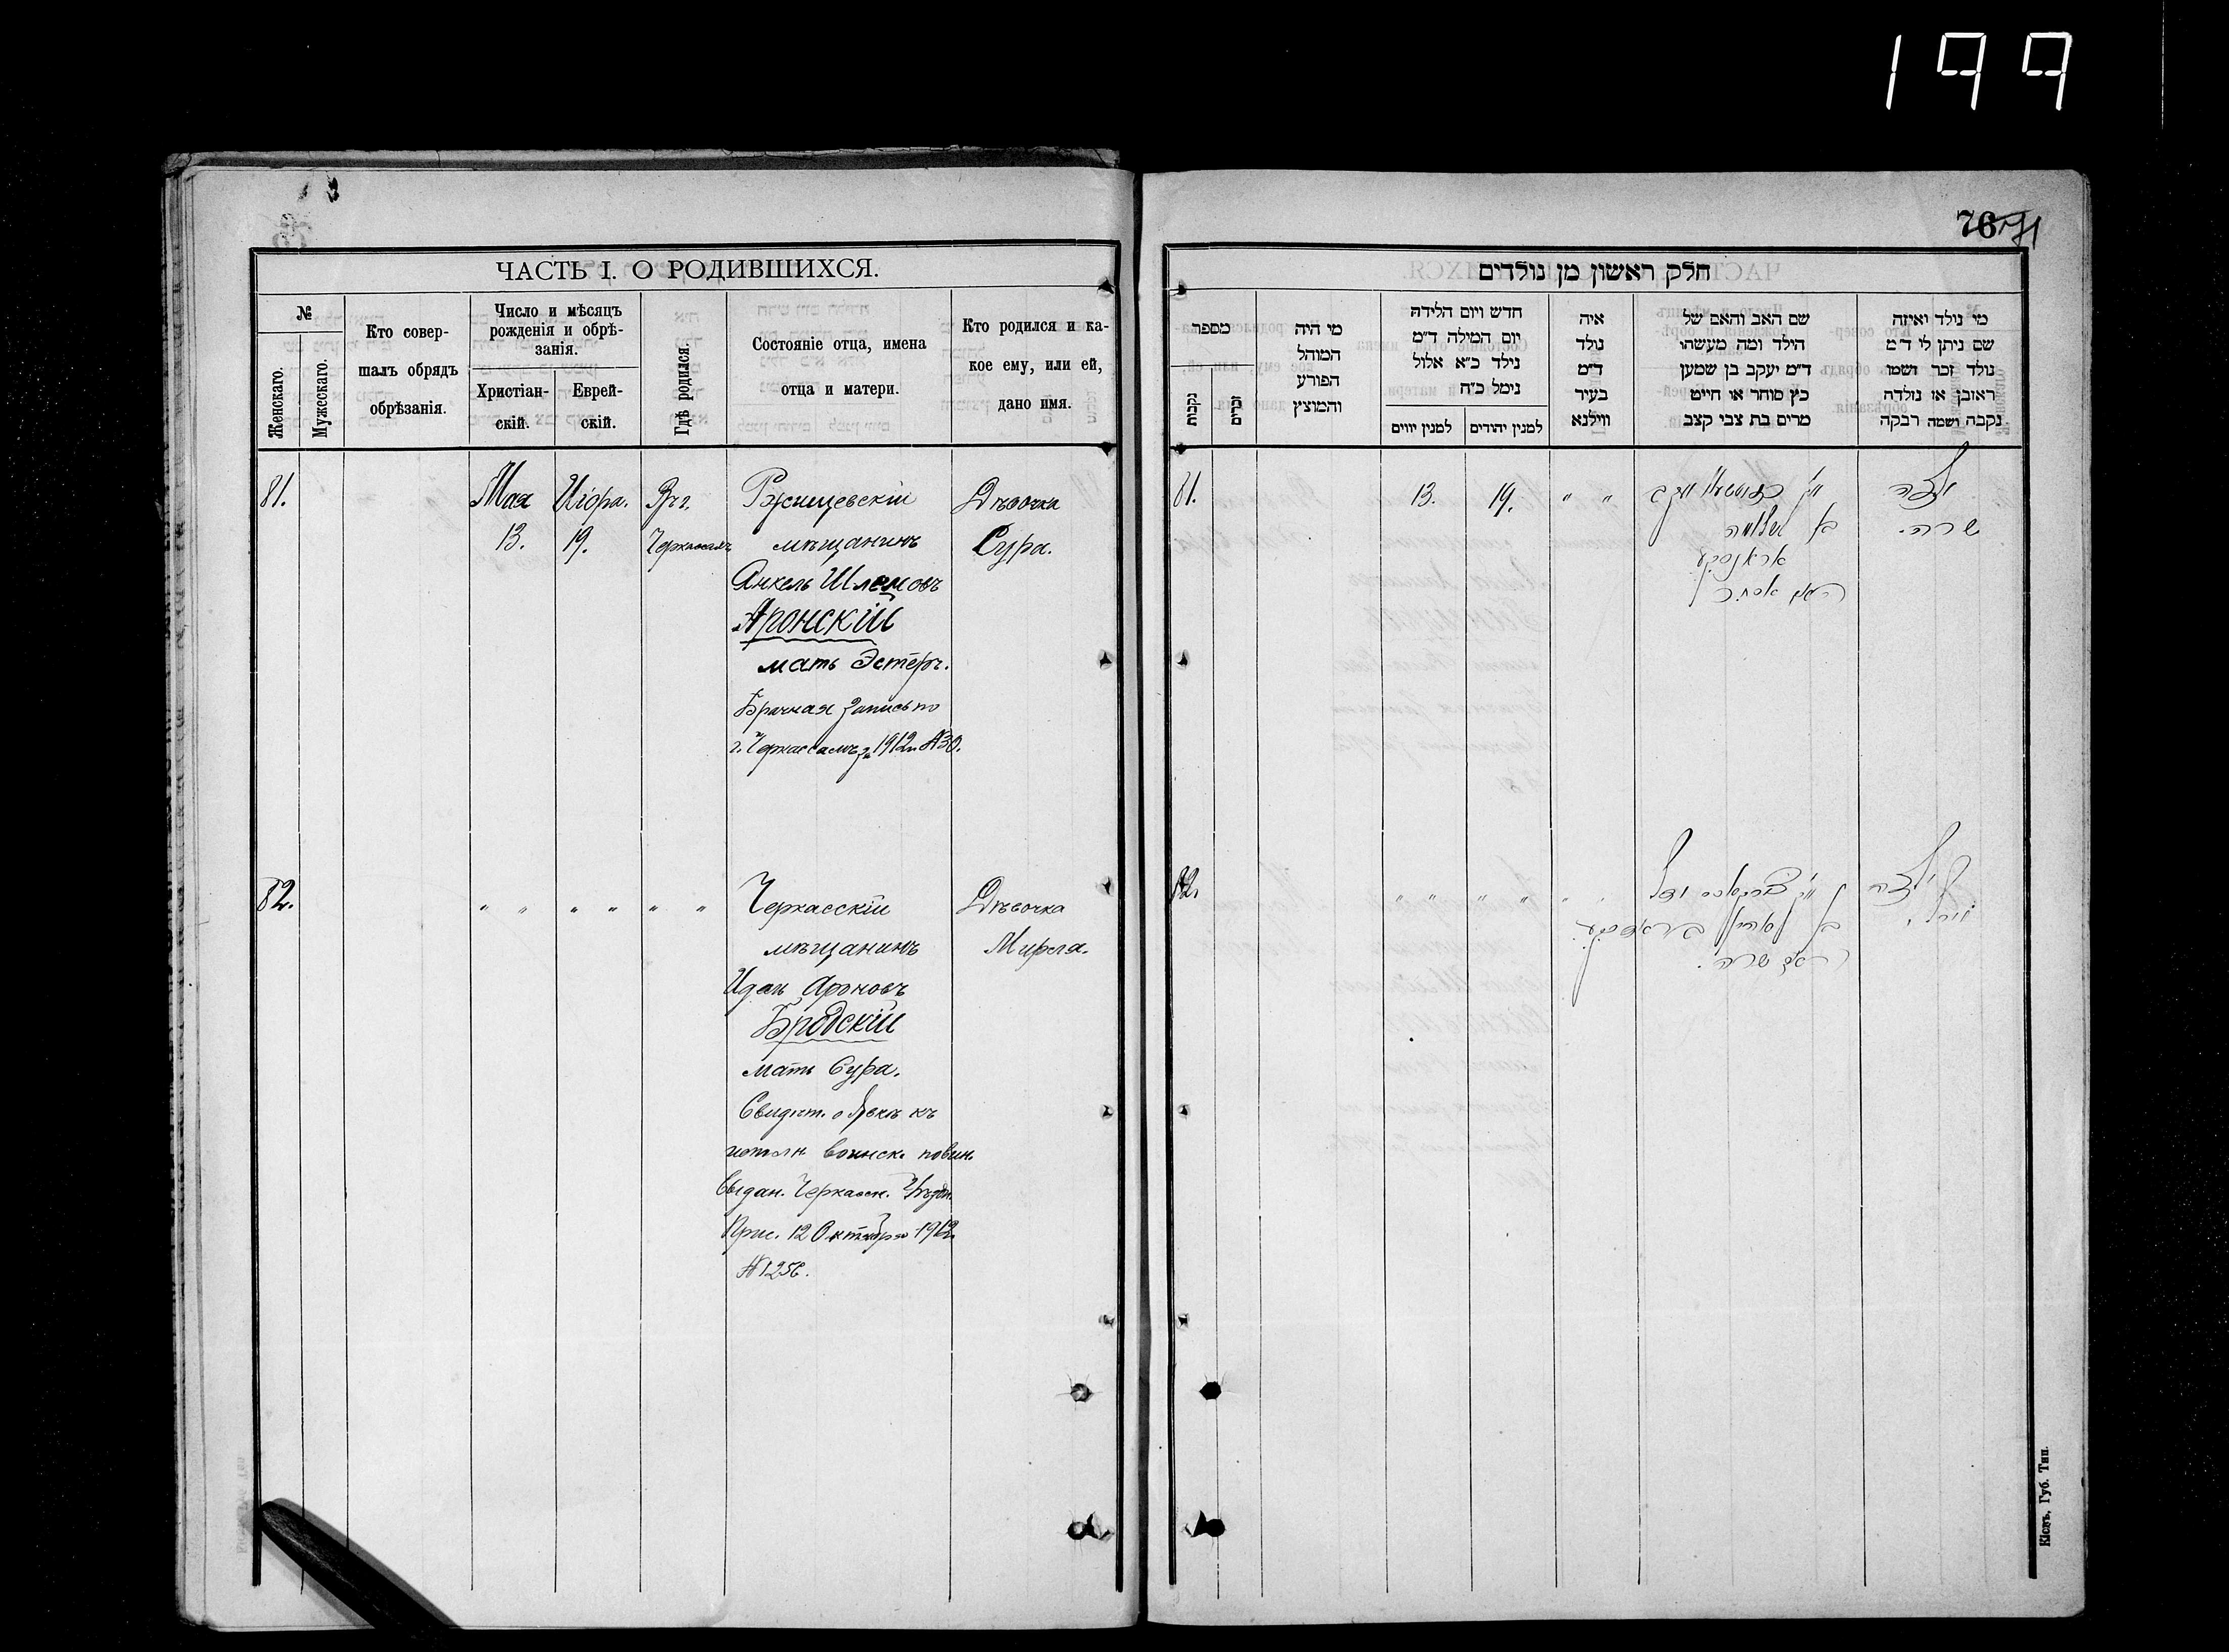 199
ЧАСТЬ I. О РОДИВШИХСЯ.
№
Женскаго.
Мужескаго.
Кто совер-
шалъ обрядъ
обрѣзанія.
Число и мѣсяцъ
рожденія и обрѣ-
занія.
Христіан-
скій.
Еврей-
скій.
Гдѣ родился.
Состояніе отца, имена
отца и матери.
Кто родился и ка-
кое ему, или ей,
дано имя.
81.
Мая
13.
Иіора.
19.
Въ г.
Черкассахъ
Ржищевскій
мѣщанинъ
Янкель Шлемовъ
Аронскій
мать Эстеръ.
Брачная запись по
г. Черкассамъ за 1912 г. №30.
Дѣвочка
Сура.
82.
" " " " " "
Черкасскій
мѣщанинъ
Идель Ароновъ
Бродскій
мать Сура.
Свидѣт. о явкѣ къ
исполн. воинск. повин.
выдан. Черкасск. Уѣздн.
Прис. 12 Октября 1912 г.
Дѣвочка
Мирля.
76
חלק ראשון מן נולדים
מספר
נקבות
זכרים
מי היה
המוהל
הפורע
והמוצץ
חדש ויום הלידה
יום המילה ד״מ
נילד כ״א אלול
נימל כ״ח
למנין יווים
למנין יהודים
איה
נולד
ד״מ
בעיר
ווילנא
שם האב והאם של
הילד ומה מעשהו
ד״מ יעקב בן שמען
כץ סוחר או חייט
מרים בת צבי קצב
מי נילד ואיזה
שם ניתן לי ד״מ
נולד זכר ושמו
ראובן או נולדה
נקבה ושמה רבקה
81.
13.
19.
" "
בן שלמה
אראנסקי
האם אסתר
ילדה
שרה.
82.
" " " " " "
האם שרה.
ילדה
מירל.
Кіевъ, Губ. Тип.